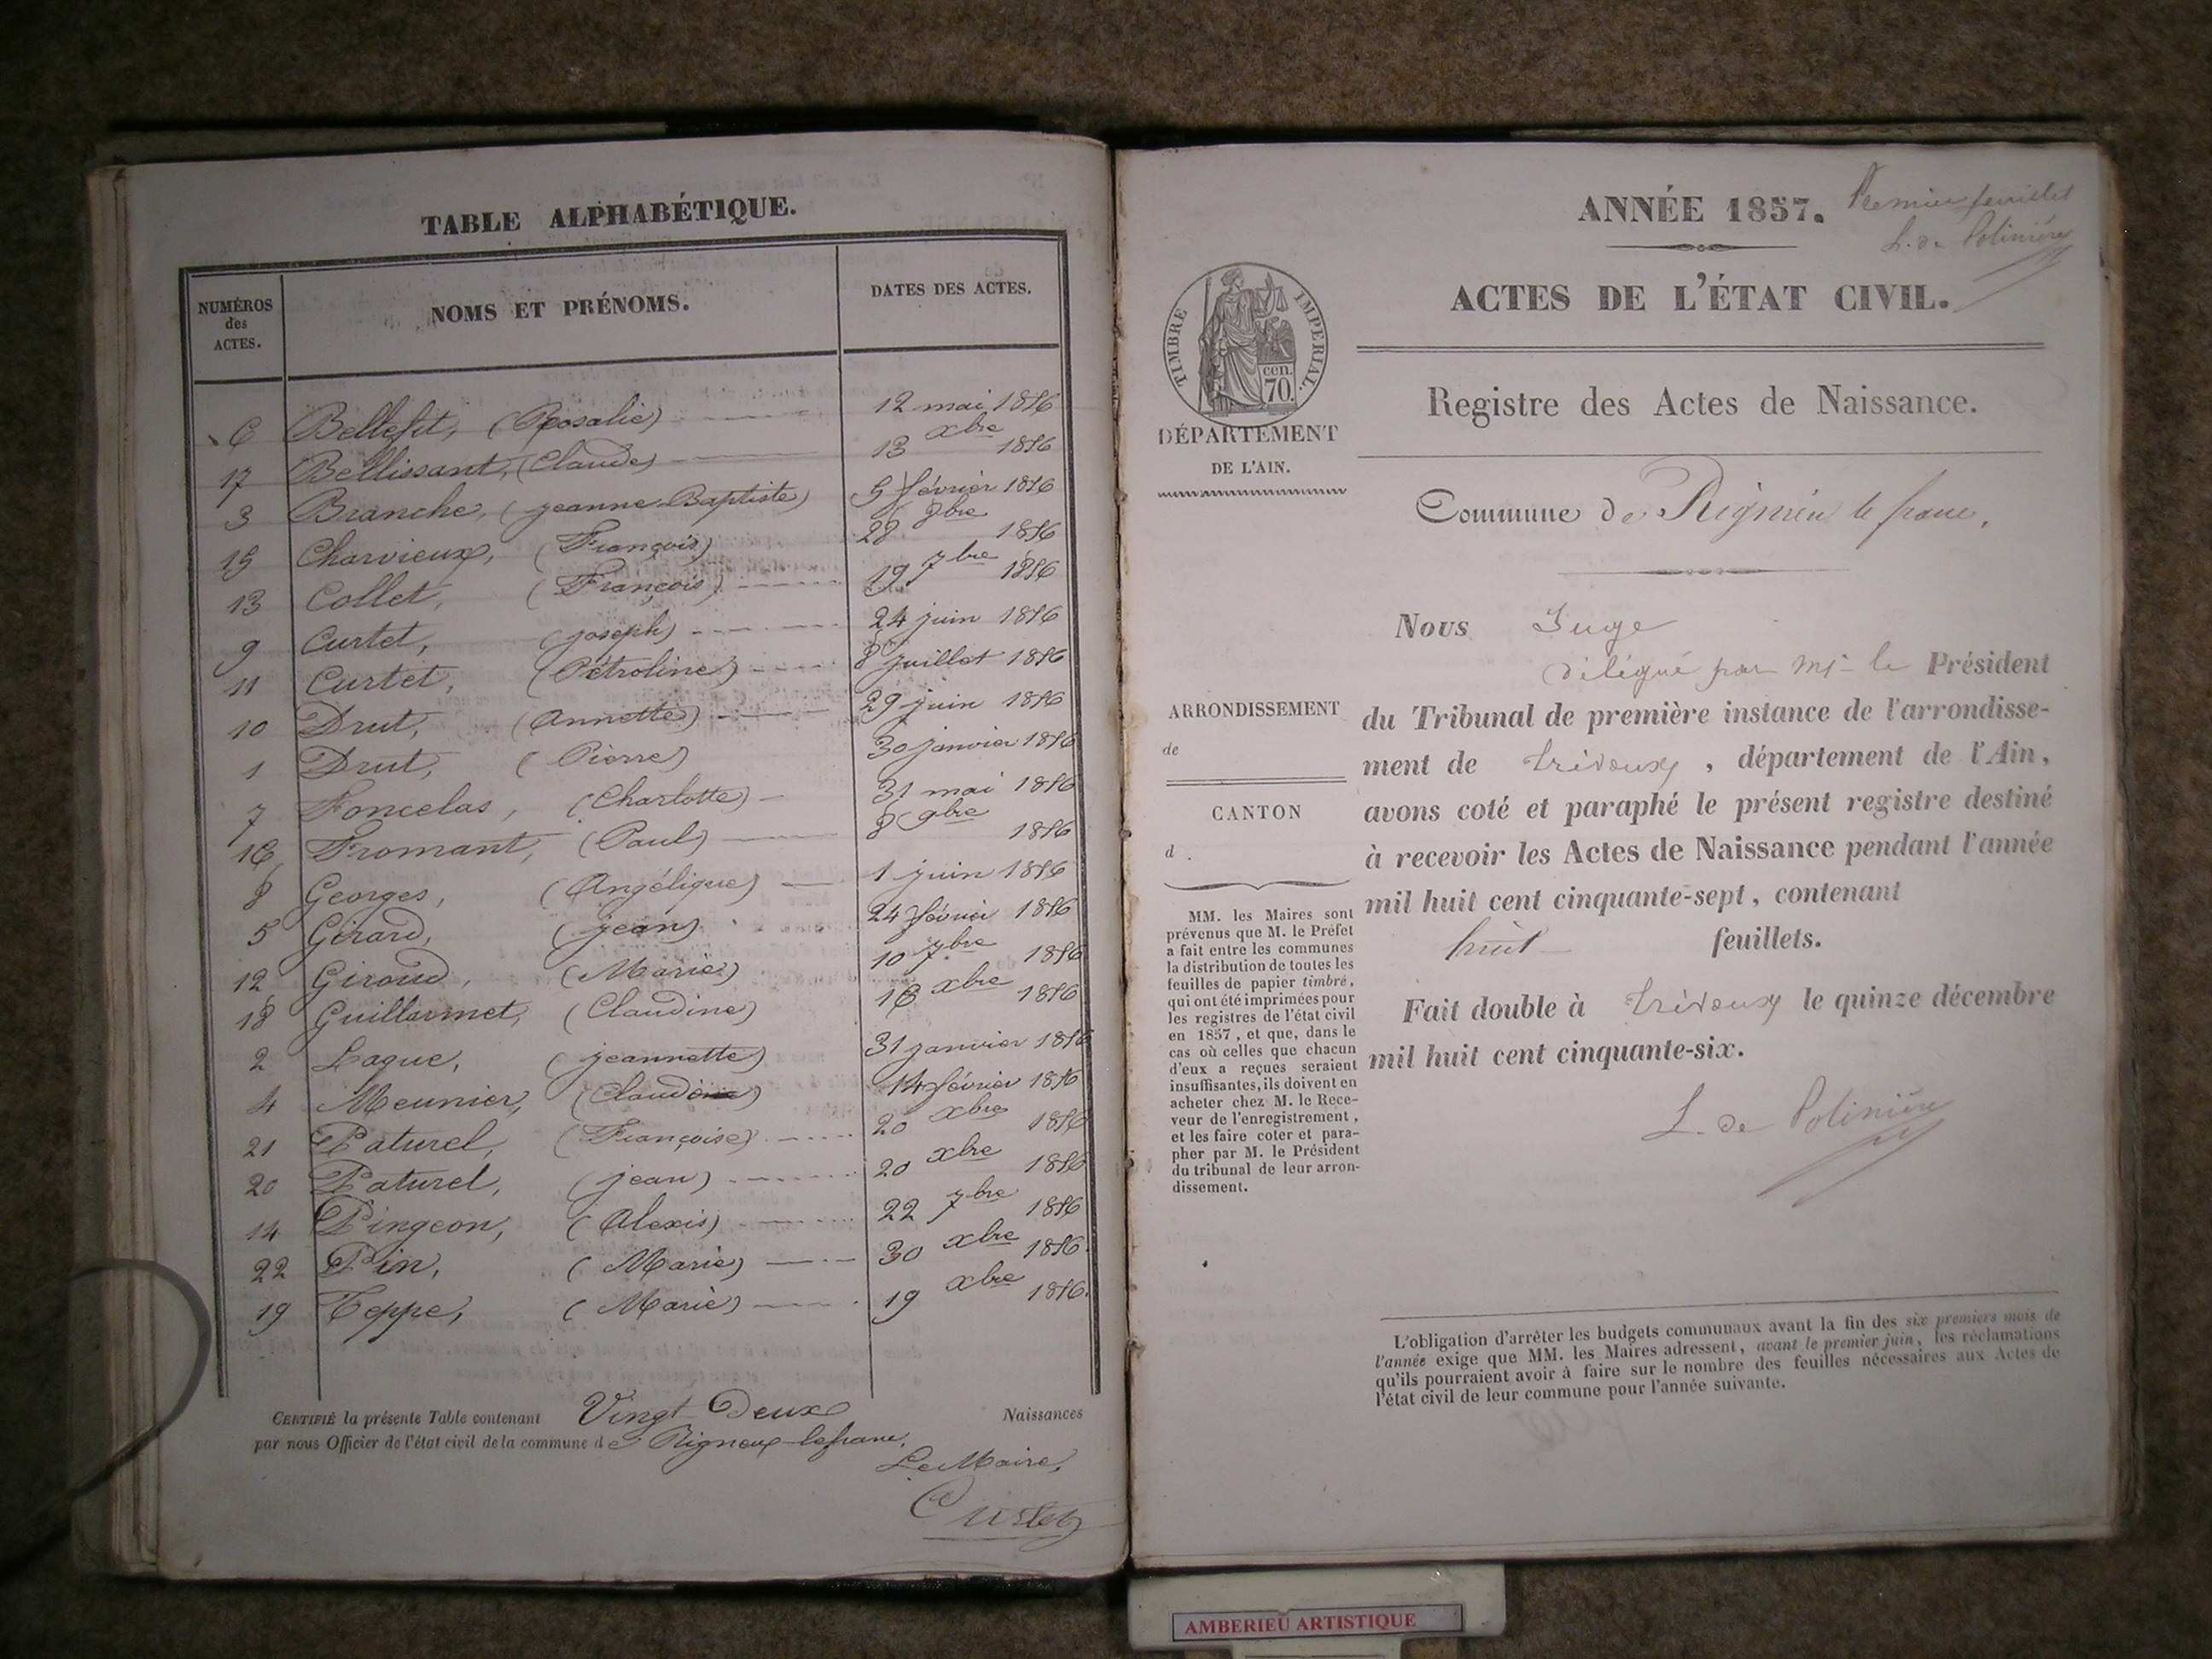 TABLE ALPHABÉTIQUE.
NUMÉROS des ACTES. NOMS ET PRÉNOMS. DATES DES ACTES.
6 Bellefit, (Rosalie) 12 mai 1856
17 Bellissant, (Claude) 13 xbre 1856
3 Branche, (jeanne Baptiste) 5 février 1856
15 Charvieux, (François) 28 8bre 1856
13 Collet, (François) 19 7bre 1856
9 Curtet, (joseph) 24 juin 1856
11 Curtet, (Pétroline) 8 juillet 1856
10 Drut, (Annette) 29 juin 1856
1 Drut, (Pierre) 30 janvier 1856
7 Foncelas, (Charlotte) 31 mai 1856
16 Fromant, (Paul) 8 9bre 1856
8 Georges, (Angélique) 1 juin 1856
5 Girard, (jean) 24 février 1856
12 Giroud, (Marie) 10 7bre 1856
18 Guillermet, (Claudine) 16 xbre 1856
2 Laque, (jeannette) 31 janvier 1856
4 Meunier, (Claude) 14 février 1856
21 Paturel, (Françoise) 20 xbre 1856
20 Paturel, (jean) 20 xbre 1856
14 Pingeon, (Alexis) 22 7bre 1856
22 Pin, (Marie) 30 xbre 1856
19 Teppe, (Marie) 19 xbre 1856.
CERTIFIÉ la présente Table contenant Vingt Deux Naissances
par nous Officier de l'état civil de la commune de Rigneux-lefranc.
Le Maire,
Curtet
ANNÉE 1857. Premier feuillet
L. de Polinière
ACTES DE L'ÉTAT CIVIL.
TIMBRE IMPERIAL.
cen.
70.
Registre des Actes de Naissance.
DÉPARTEMENT
DE L'AIN.
Commune de Rignieu le franc.
Nous Juge
délégué par Mr le Président
du Tribunal de première instance de l'arrondisse-
ment de Trévoux, département de l'Ain,
avons coté et paraphé le présent registre destiné
à recevoir les Actes de Naissance pendant l'année
mil huit cent cinquante-sept, contenant
huit feuillets.
Fait double à Trévoux le quinze décembre
mil huit cent cinquante-six.
L. de Polinière
ARRONDISSEMENT
de
CANTON
d .
MM. les Maires sont
prévenus que M. le Préfet
a fait entre les communes
la distribution de toutes les
feuilles de papier timbré,
qui ont été imprimées pour
les registres de l'état civil
en 1857, et que, dans le
cas où celles que chacun
d'eux a reçues seraient
insuffisantes, ils doivent en
acheter chez M. le Rece-
veur de l'enregistrement,
et les faire coter et para-
pher par M. le Président
du tribunal de leur arron-
dissement.
L'obligation d'arrêter les budgets communaux avant la fin des six premiers mois de
l'année exige que MM. les Maires adressent, avant le premier juin, les réclamations
qu'ils pourraient avoir à faire sur le nombre des feuilles nécessaires aux Actes de
l'état civil de leur commune pour l'année suivante.
AMBERIEU ARTISTIQUE